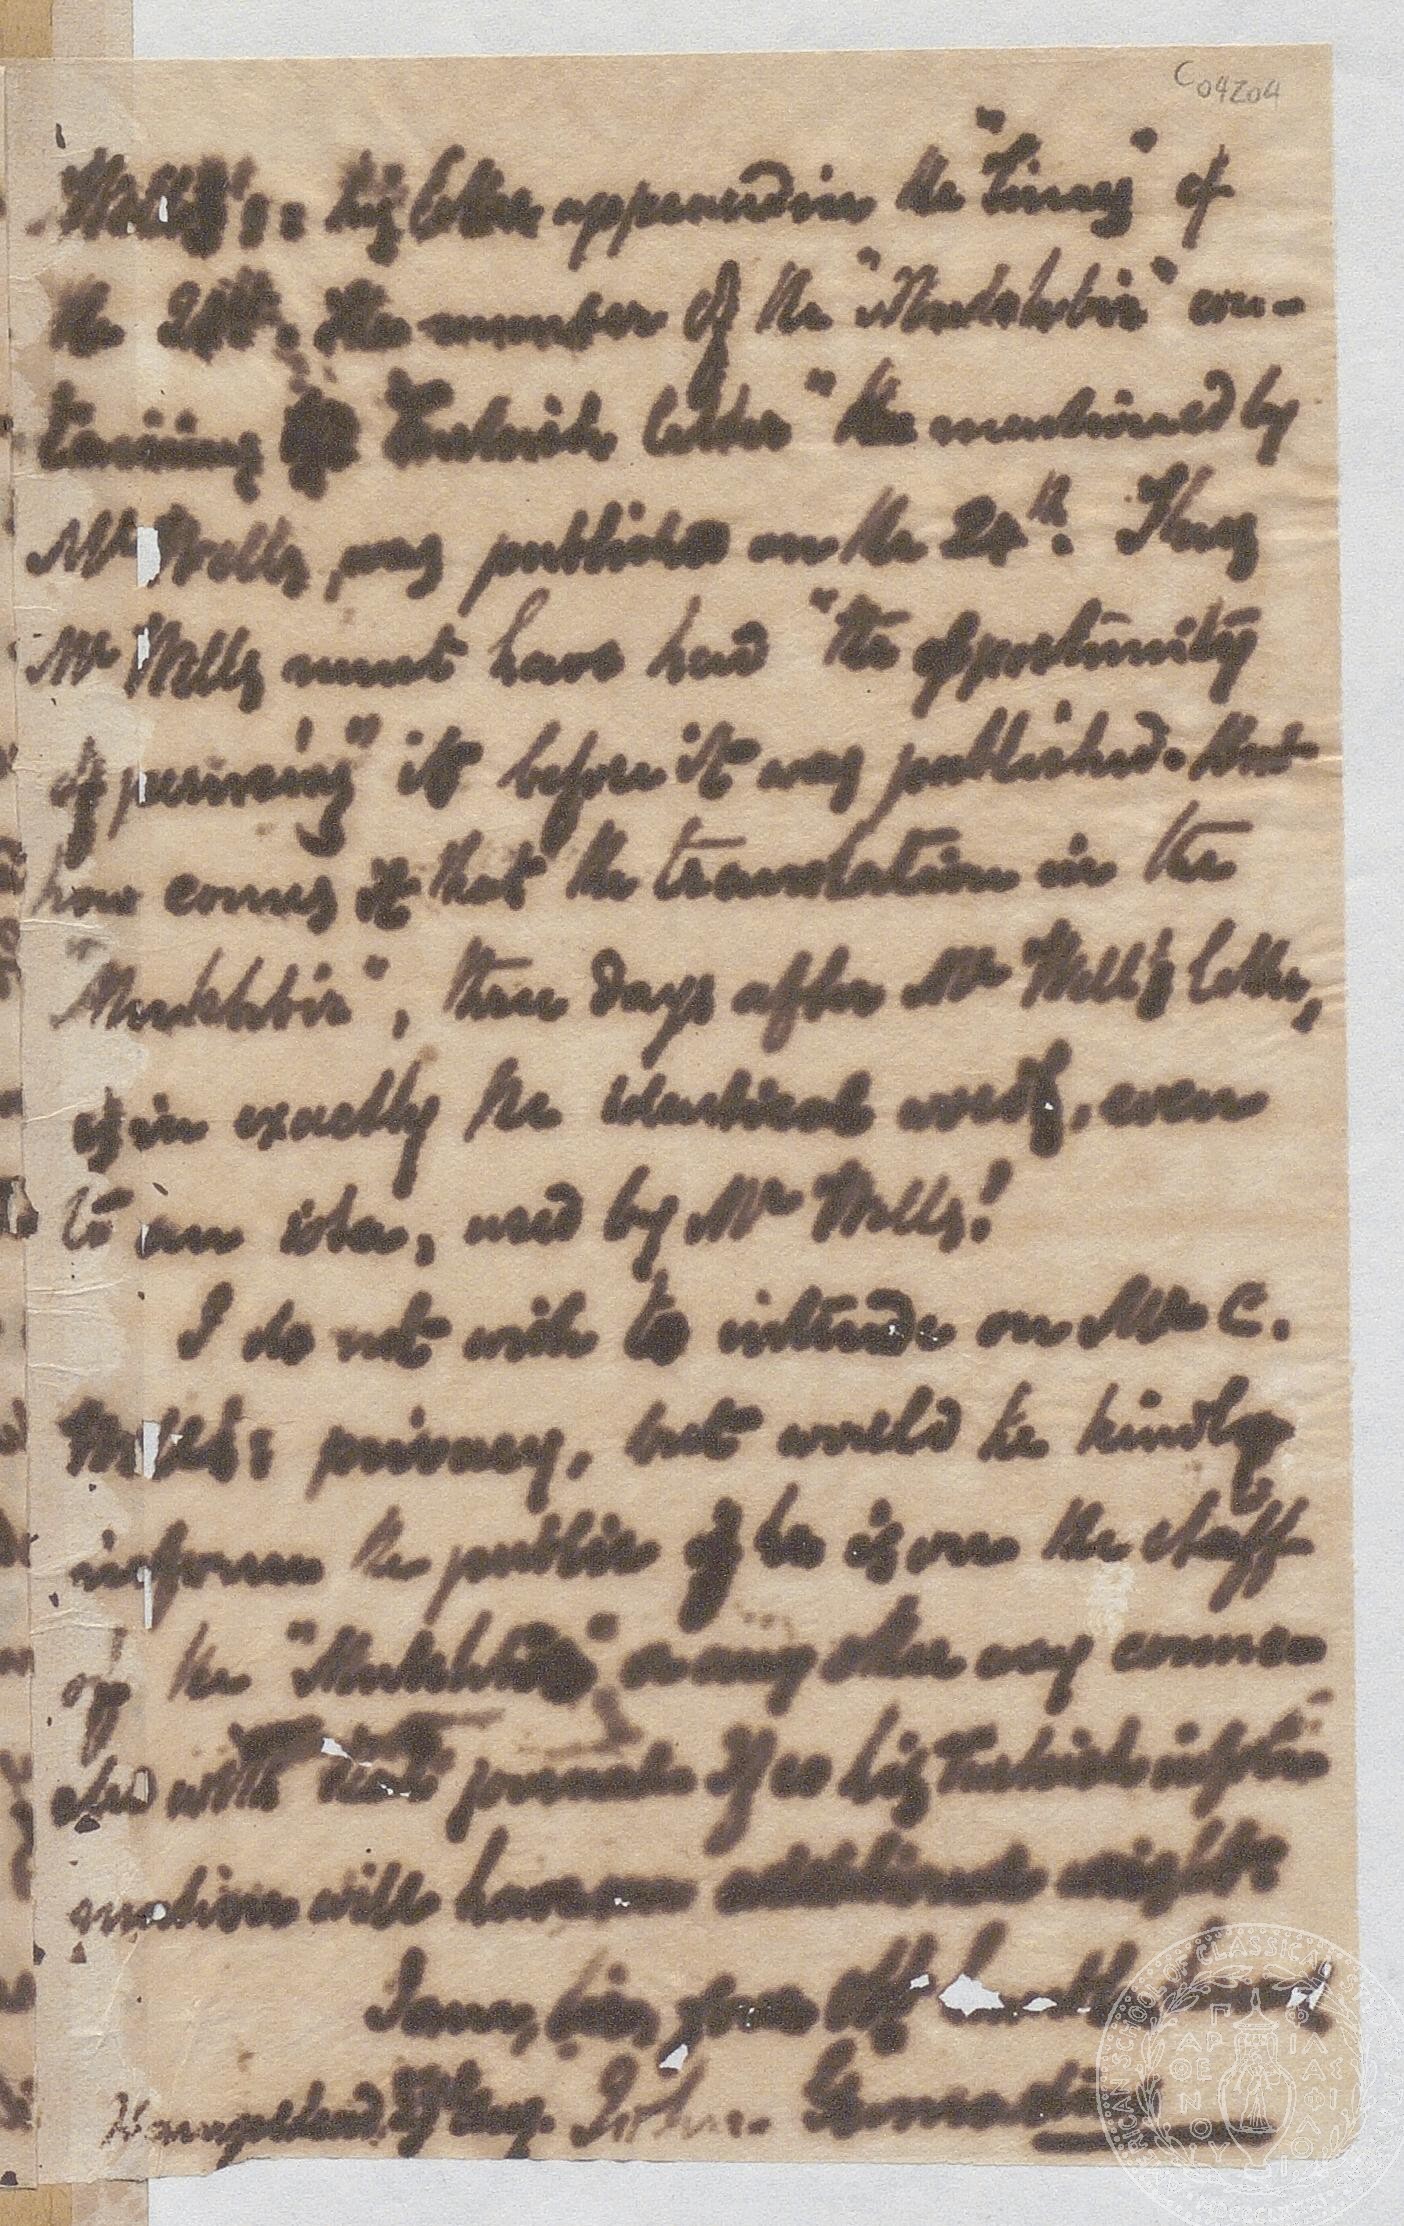 C04Z04
Wells's: his letter appeared in the "Times" of
the 21st. The number of the "Mukhbir" con-
taining the Turkish letter "the mentioned by
Mr Wells, was published on the 24th. Thus
Mr Wells must have had "the opportunity
of perusing" it before it was published. But
how comes it that the translation in the
"Mukhbir", three days after Mr Wells's letter,
is in exactly the identical words, even
to an iota, used by Mr Wells!
I do not wish to intrude on Mr C.
Wells's privacy, but would he kindly
inform the public if he is on the staff
of the "Mukhbir" or any other way connec
ted with that journal. If so his Turkish infor
mation will have an additional weight
I am, Sir, your Ob humble servant
Aug. John Gennadius